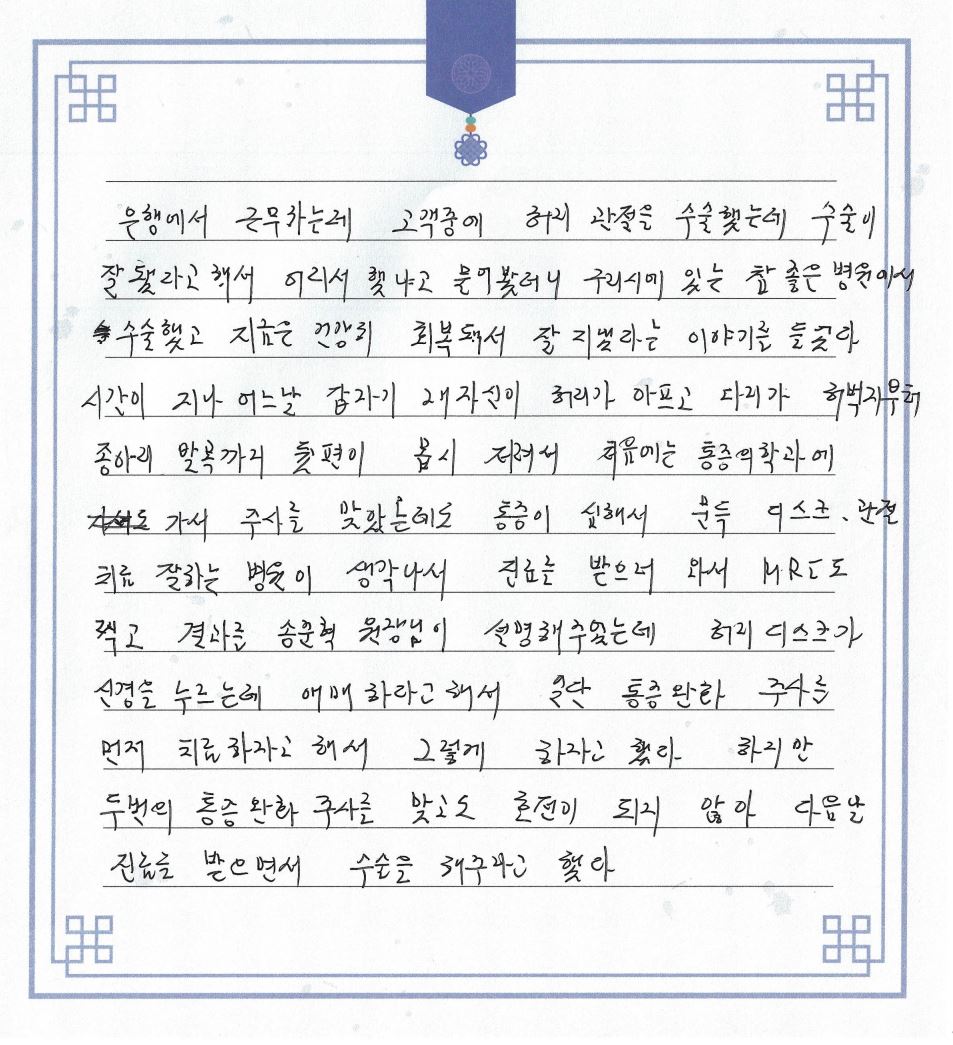 은행에서 근무하는데 고객중에 허리 관절을 수술했는데 수술이
잘 됬라고 해서 어리서 했냐고 물어봤더니 구리시에 있는 참 좋은 병원에서
수술했고 지금은 건강히 회복되서 잘 지낸다는 이야기를 들었다
시간이 지나 어느날 갑자기 내 자신이 허리가 아프고 다리가 허벅지부터
종아리 발목까지 한편이 몹시 저려서 처음에는 통증의학과에
가서 주사를 맞았는데도 통증이 심해서 문득 디스크, 관절
치료 잘하는 병원이 생각나서 진료를 받으러 와서 M.R.I도
찍고 결과를 송운혁 원장님이 설명해주었는데 허리 디스크가
신경을 누르는데 애매하다고 해서 일단 통증완화 주사를
먼저 치료하자고 해서 그렇게 하자고 했다. 하지만
두번의 통증 완화 주사를 맞고도 호전이 되지 않아 다음날
진료를 받으면서 수술을 해주라고 했다